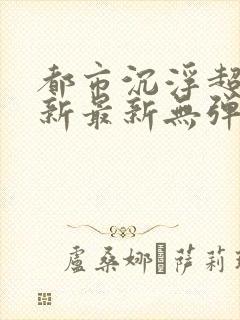 都市沉浮超
新最新無弹
盧桑娜 萨莉